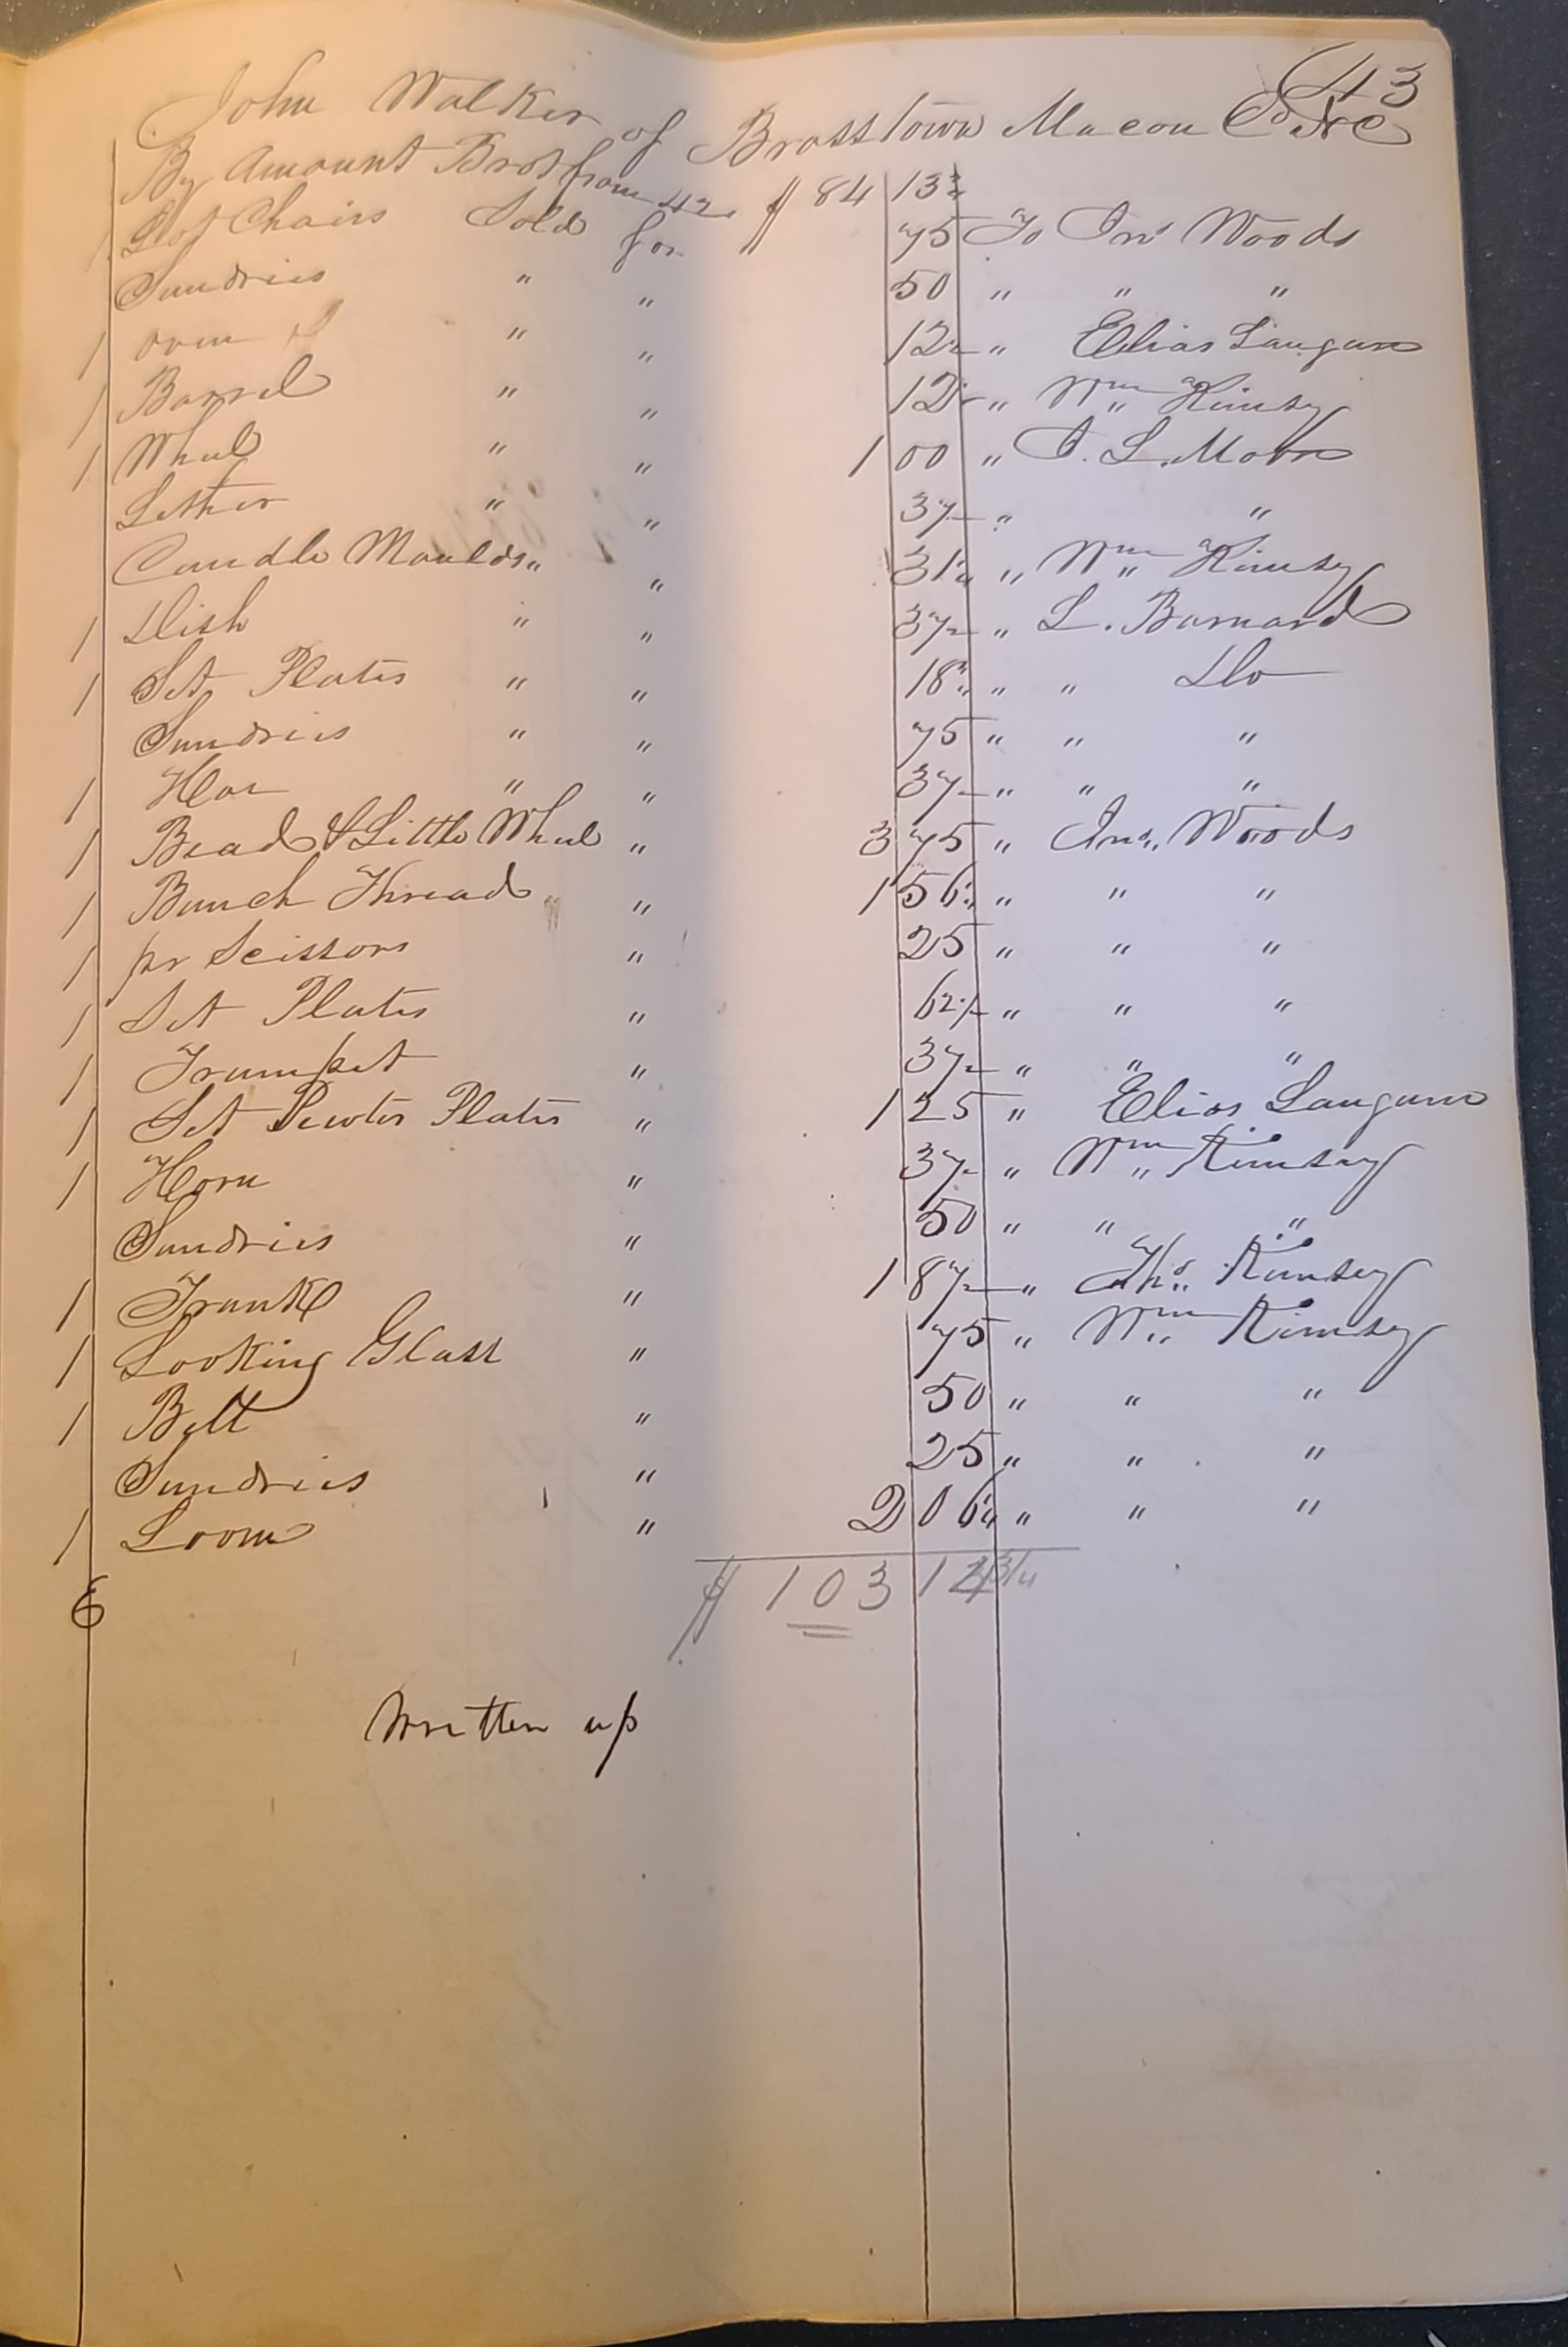 43
John Walker of Brasstown Macon Co NC
By Amount Brot from 42. $ 84 13¾
Lot Chairs Sold for 75 To Jno Woods
Sundries " " 50 " " "
1 oven " " 12½ " Elias Langum
1 Barrel " " 12½ " Wm Kimsey
1 Wheel " " 1 00 " J. L. Moore
Lether " " 37½ " "
Candle Moulds " " 31¼ " Wm Kimsey
1 Dish " " 37½ " L. Barnard
1 Set Plates " " 18¾ " " Do
Sundries " " 75 " " "
1 Hoe " " 37½ " " "
1 Bead & Little Wheel " 3 75 " Jno. Woods
1 Bunch Thread " " 1 56¼ " " "
1 pr Scissors " 25 " " "
1 Set Plates " 62½ " " "
1 Trumpet " 37½ " " "
1 Set Pewter Plates " 1 25 " Elias Langum
1 Horn " 37½ " Wm Kimsey
Sundries " 50 " " "
1 Trunk " 1 87½ " Thos Kimsey
1 Looking Glass " 75 " Wm Kimsey
1 Belt " 50 " " "
Sundries " 25 " " "
1 Loom " 2 06¼ " " "
$ 103 12 3/4
Written up